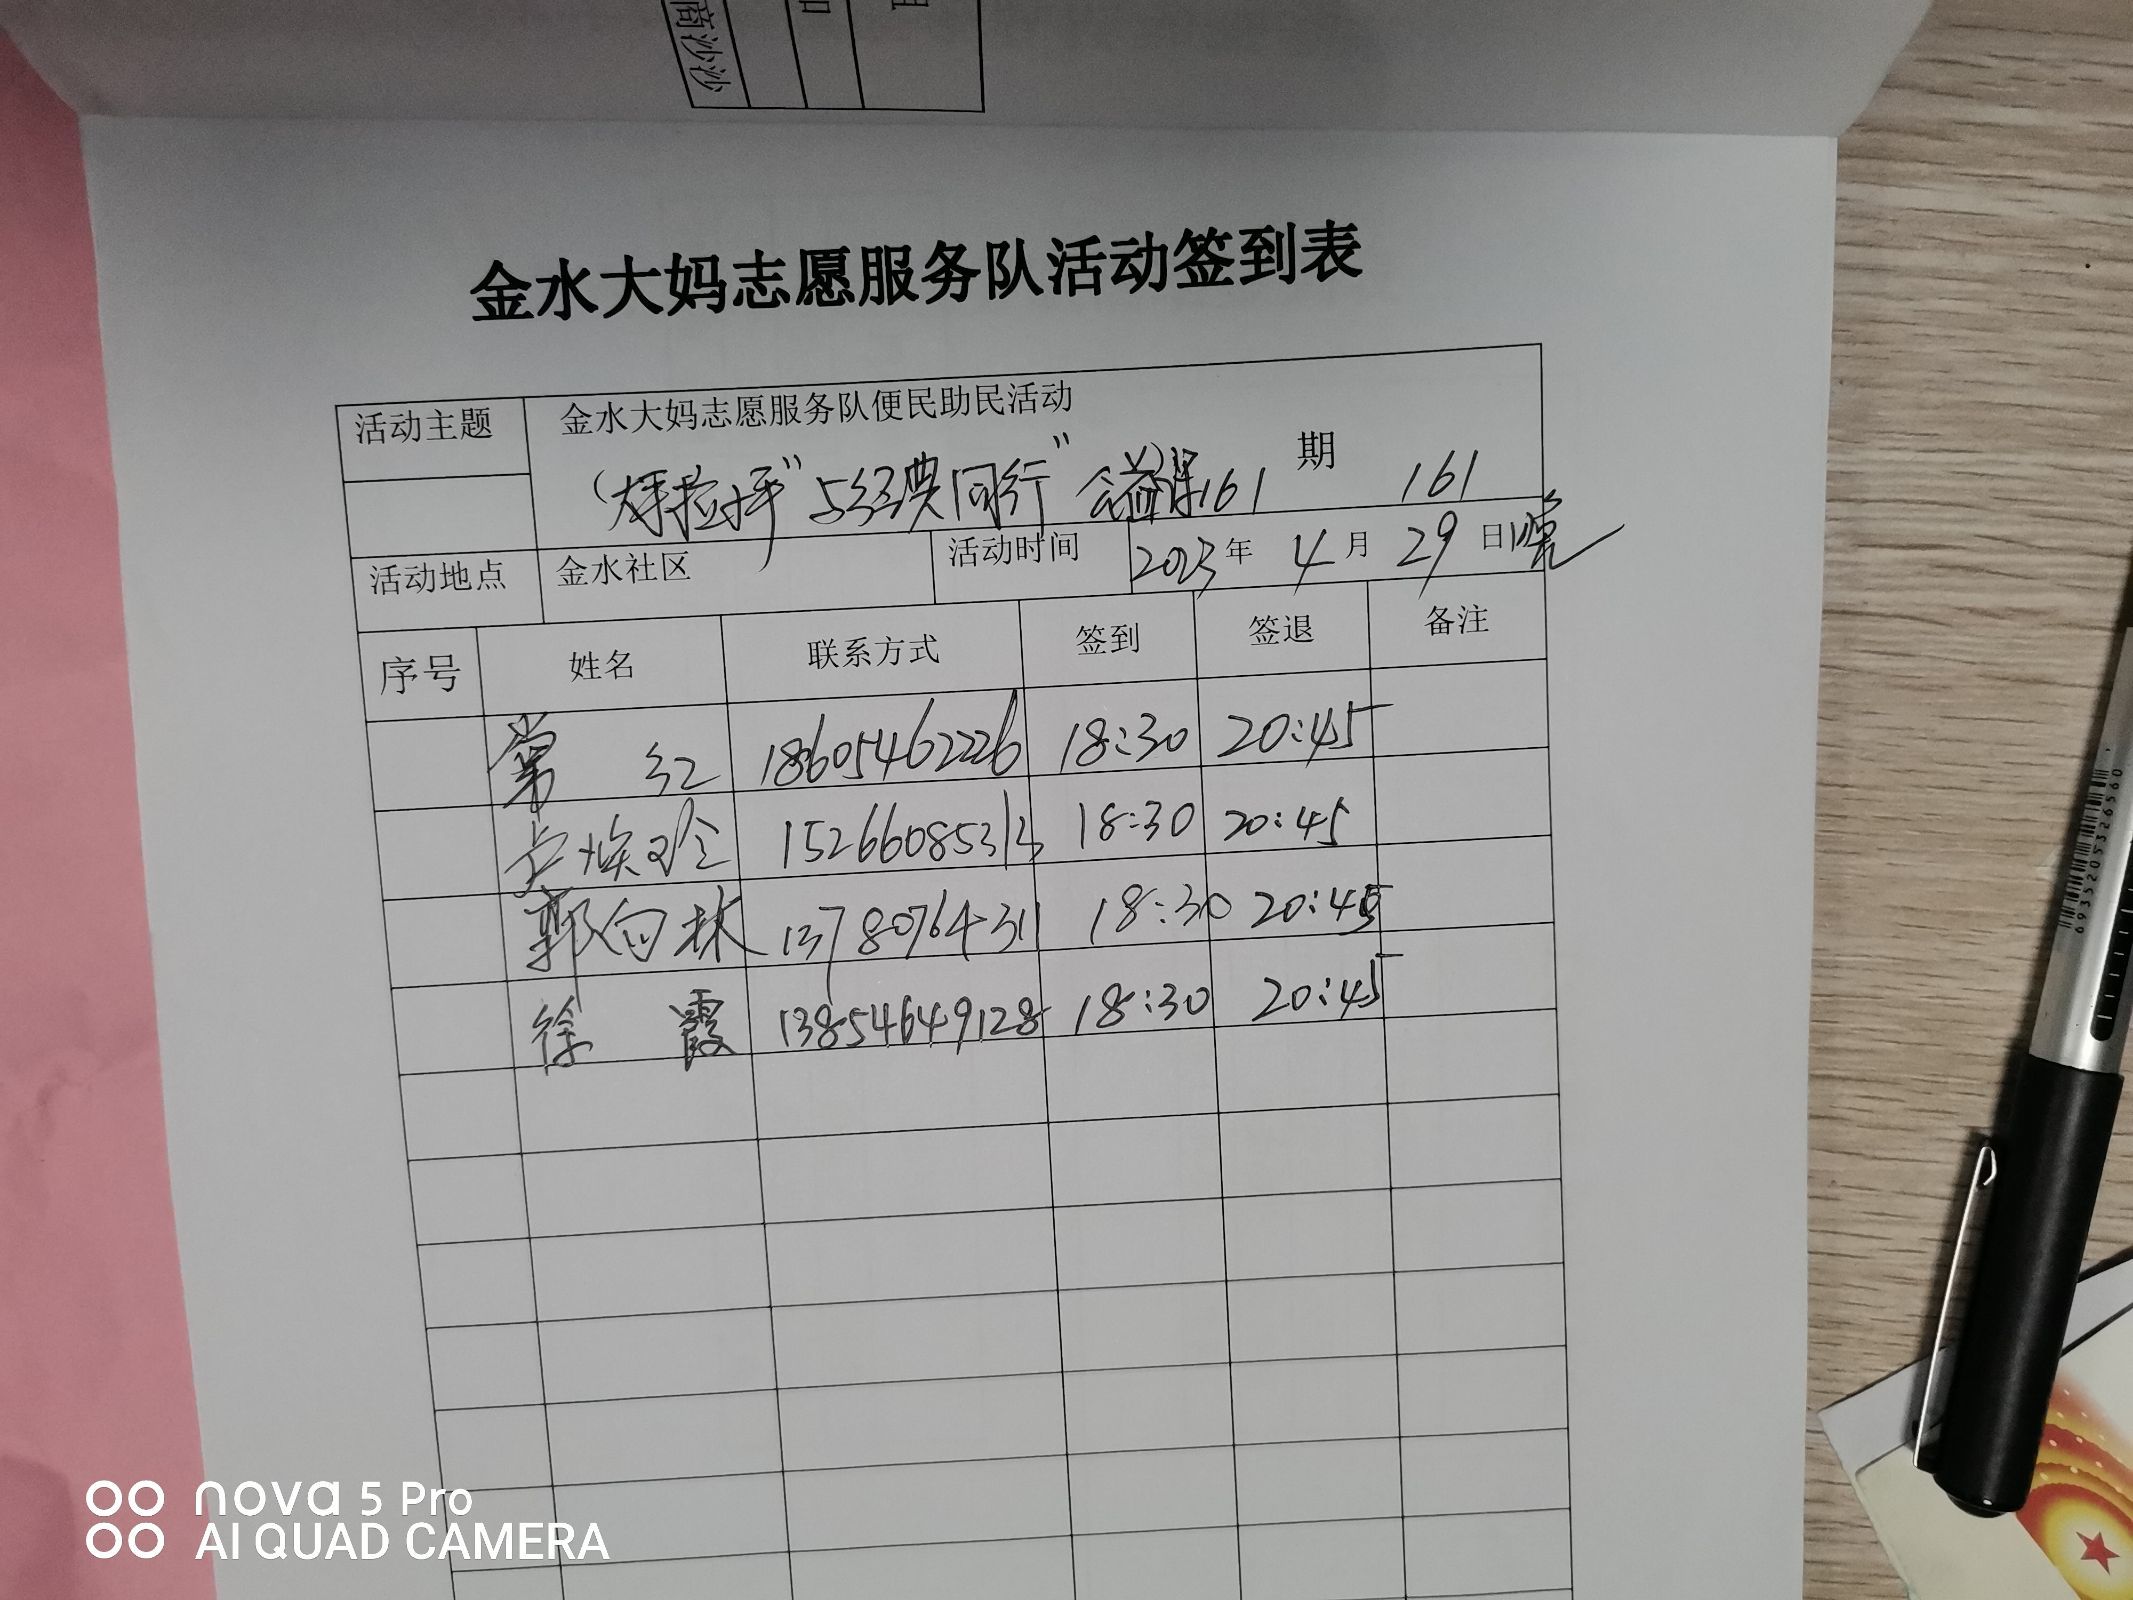 商沙沙
金水大妈志愿服务队活动签到表
活动主题 金水大妈志愿服务队便民助民活动
(大手拉小手"与经典同行"公益课161 期 161
活动地点 金水社区 活动时间 2023年 4月 29日晚
序号 姓名 联系方式 签到 签退 备注
常 红 18605462226 18:30 20:45
15266085313 18:30 20:45
郭向林 1378076431 18:30 20:45
徐 霞 13854649128 18:30 20:45
6935205326560
nova 5 Pro
AI QUAD CAMERA